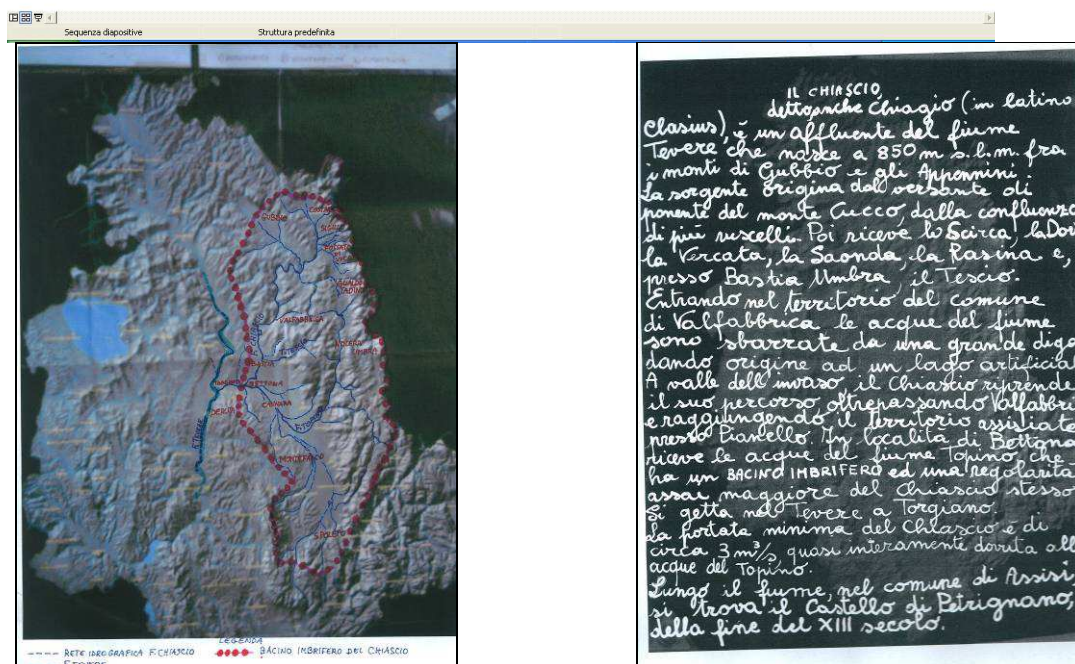 Sequenza diapositive
Struttura predefinita
GUBBIO
SIGILLO
VALFABBRICA
F. CHIASCIO
F. TOPINO
NOCERA
UMBRA
BASTIA
BETTONA
CANNARA
DERUTA
F. TEVERE
F. TOPINO
MONTEFALCO
SPOLETO
LEGENDA
RETE IDROGRAFICA F. CHIASCIO
BACINO IMBRIFERO DEL CHIASCIO
F. TEVERE
IL CHIASCIO,
detto anche Chiagio (in latino
Clasius), è un affluente del fiume
Tevere che nasce a 850 m s.l.m. fra
i monti di Gubbio e gli Appennini.
La sorgente origina dal versante di
ponente del monte Cucco, dalla confluenza
di più ruscelli. Poi riceve lo Scirca, la Dor
la Vercata, la Saonda, la Rasina e,
presso Bastia Umbra, il Tescio.
Entrando nel territorio del comune
di Valfabbrica le acque del fiume
sono sbarrate da una grande diga
dando origine ad un lago artificial
A valle dell'invaso, il Chiascio riprende
il suo percorso oltrepassando Valfabbri
e raggiungendo il territorio assisiate
presso Pianello. In località di Bettona
riceve le acque del fiume Topino, che
ha un BACINO IMBRIFERO ed una regolarità
assai maggiore del Chiascio stesso
Si getta nel Tevere a Torgiano.
La portata minima del Chiascio è di
circa 3 m³/s, quasi interamente dovuta all
acque del Topino.
Lungo il fiume, nel comune di Assisi,
si trova il Castello di Petrignano,
della fine del XIII secolo.